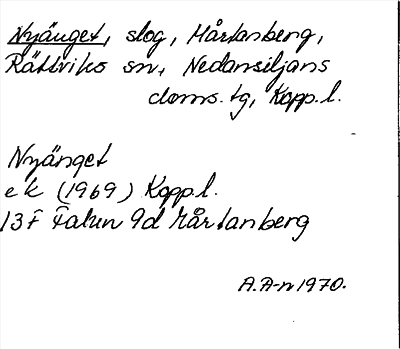 Nyänget, slog, Mårtanberg,
Rättviks sn, Nedansiljans
doms. tg, Kopp. l.
Nyänget
ek (1969) Kopp. l.
13F Falun 9d Mårtanberg
A.A-n 1970.